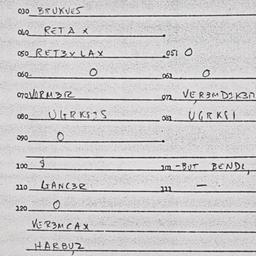 030 BRUKVES
040 RET A X
050 RET3V LAX 051 O
060 O 061 O
070 VARM3R 072 VER3MDIK3R
080 UGRKSIS 081 UGRKSI
090 O
100 9 101 -BUT BENDI,
110 GANC3R 111 —
120 O
VER3MCAX
HARBUZ